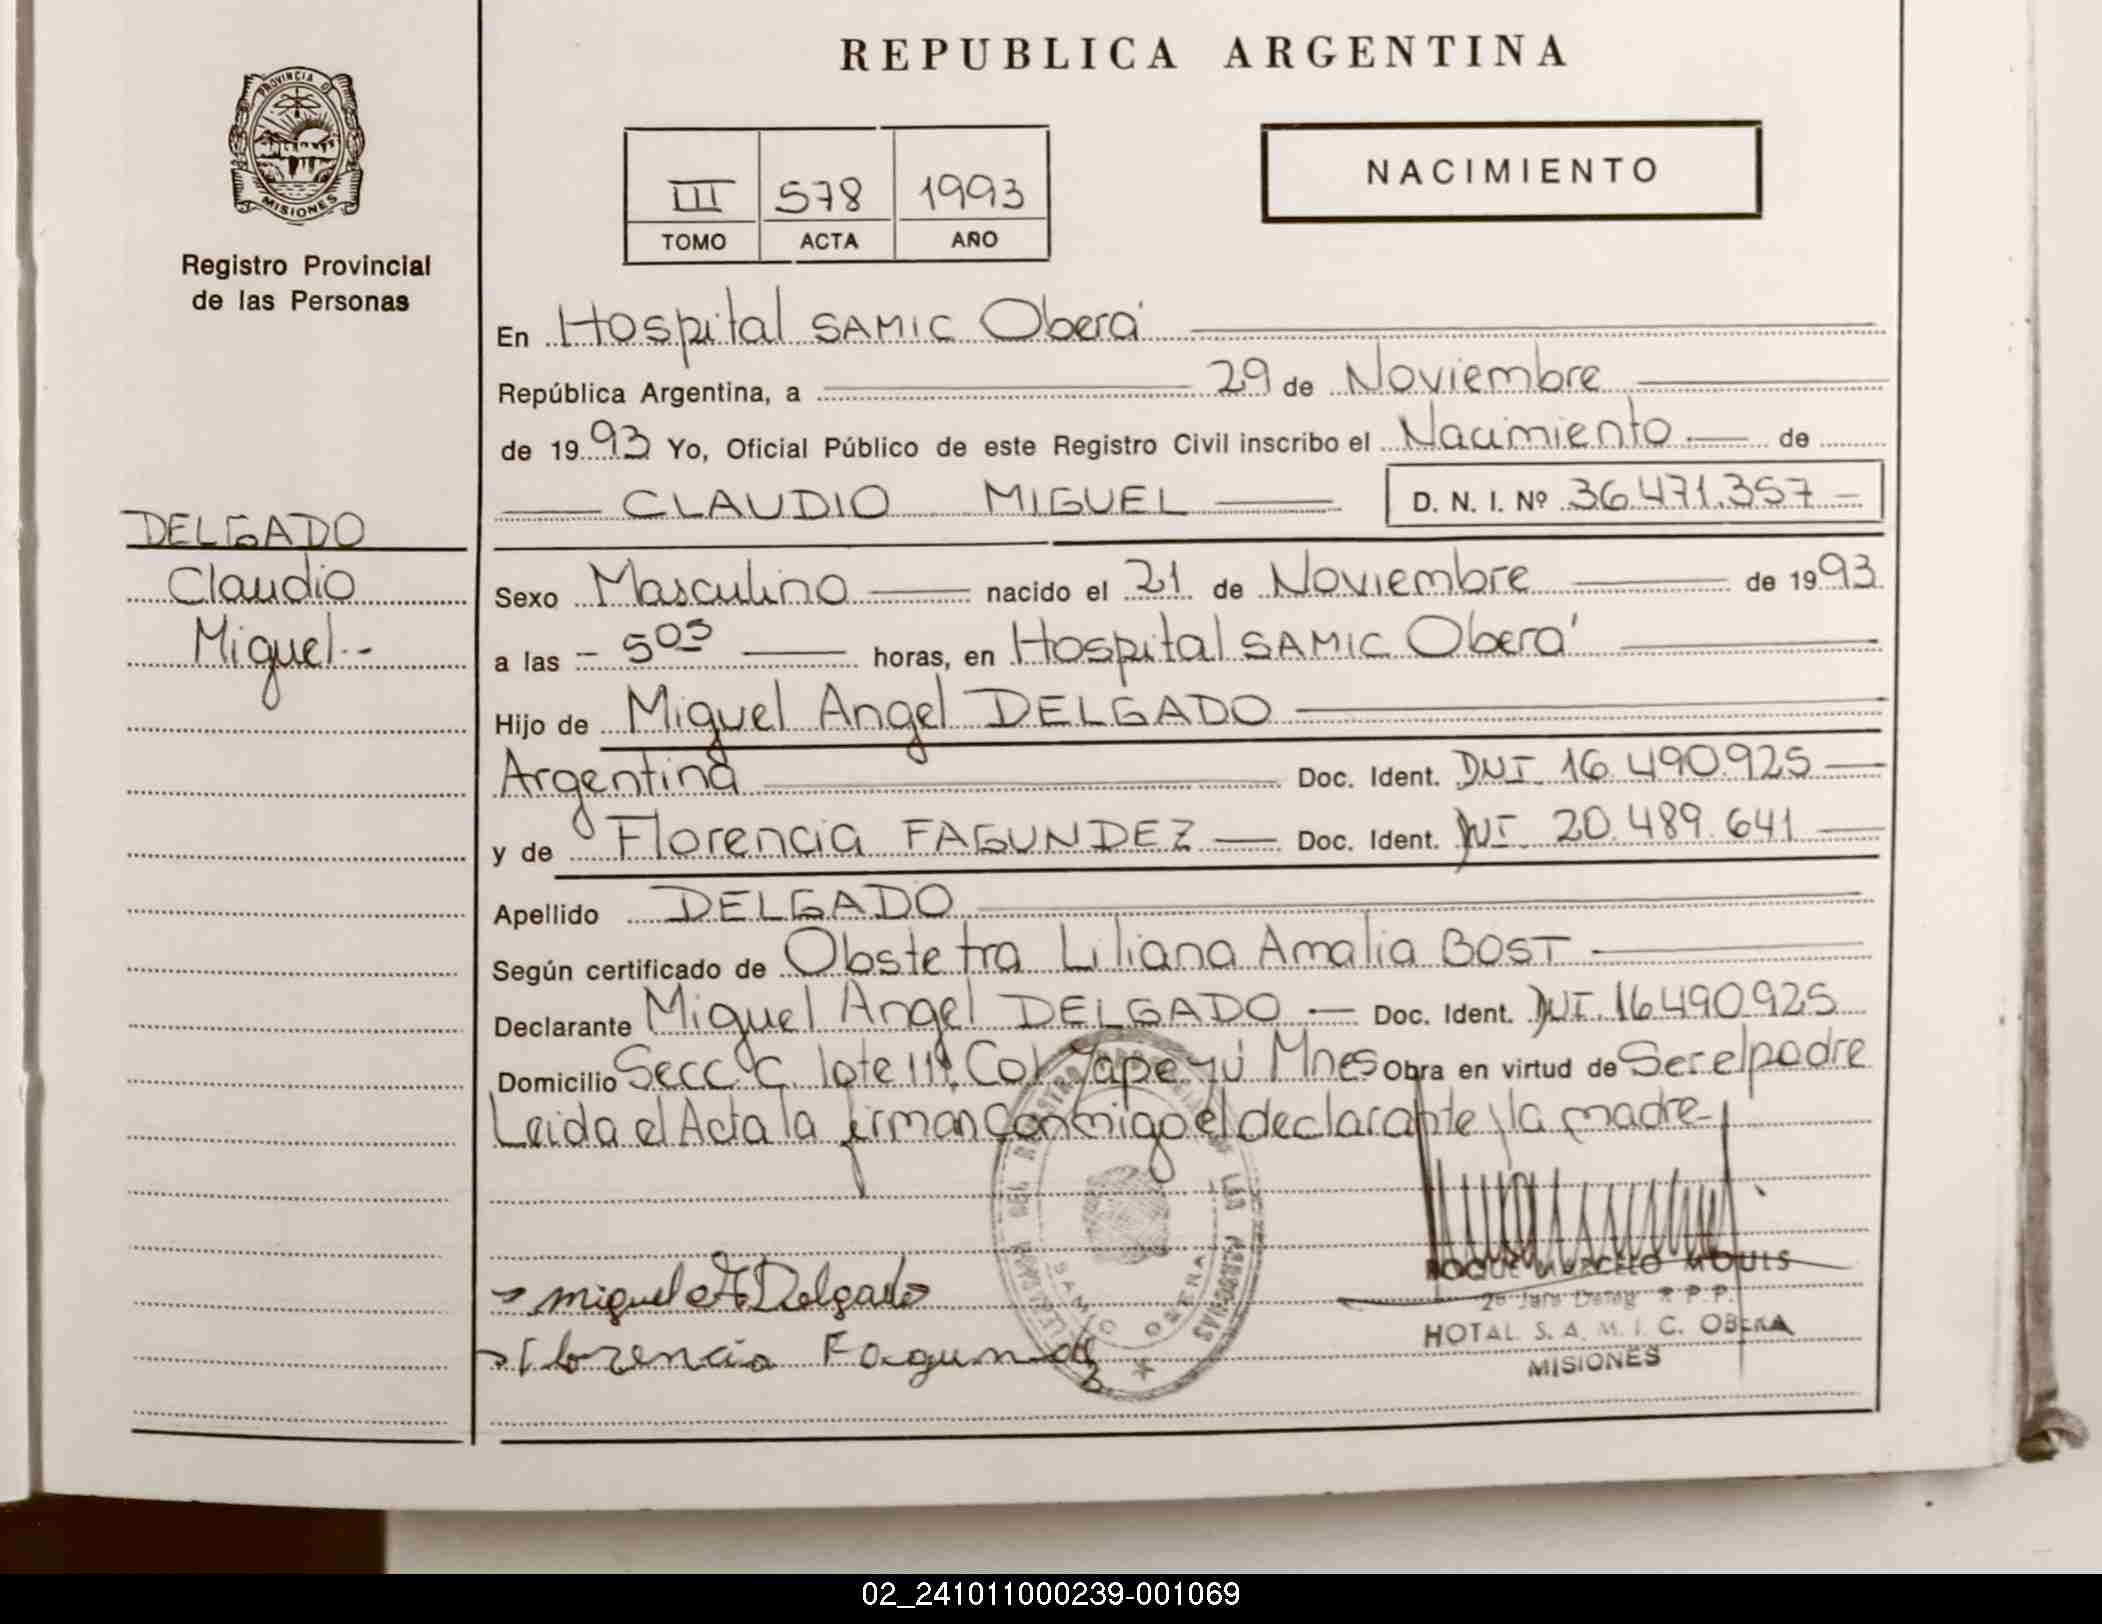 REPUBLICA ARGENTINA
PROVINCIA DE
MISIONES
Registro Provincial
de las Personas
III 578 1993
TOMO ACTA AÑO
NACIMIENTO
En Hospital SAMIC Oberá
República Argentina, a 29 de Noviembre
de 1993 Yo, Oficial Público de este Registro Civil inscribo el Nacimiento de
CLAUDIO MIGUEL D. N. I. Nº 36.471.357
DELGADO
Claudio
Miguel.-
Sexo Masculino nacido el 21 de Noviembre de 1993
a las 5 05 horas, en Hospital SAMIC Oberá
Hijo de Miguel Angel DELGADO
Argentina Doc. Ident. DNI 16.490.925
y de Florencia FAGUNDEZ Doc. Ident. DNI 20.489.641
Apellido DELGADO
Según certificado de Obstetra Liliana Amalia BOST
Declarante Miguel Angel DELGADO Doc. Ident. DNI 16.490.925
Domicilio Secc C lote 111 Col Yapeyú Mnes Obra en virtud de Ser el padre
Leida el Acta la firman conmigo el declarante y la madre
miguel A Delgado
Florencia Fagundez
SAMIC OBERA
ROQUE MARCELO MOUIS
R P.P.
HOTAL S. A. M. I. C. OBERA
MISIONES
02_241011000239-001069